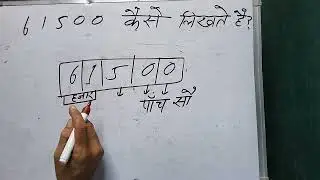 61500 कैसे लिखते है?
6 1 5 0 0
हजार पाँच सौ